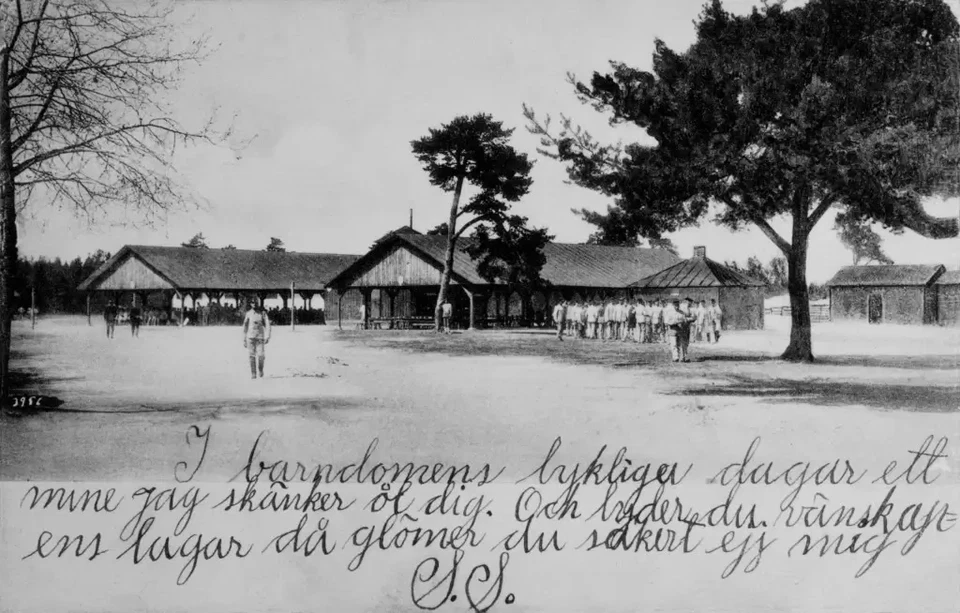 3956
I barndomens lykliga dagar ett
mine jag skänker åt dig. Och lyder du vänskapt-
ens lagar då glömer du säkert ej mig
S.S.